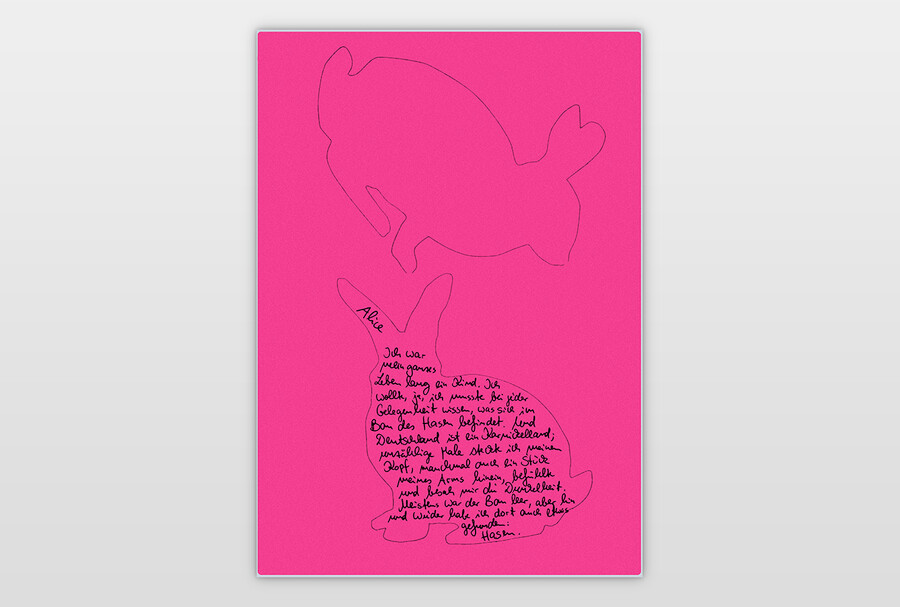 Alice
Ich war
mein ganzes
Leben lang ein Kind. Ich
wollte, ja, ich musste bei jeder
Gelegenheit wissen, was sich im
Bau des Hasen befindet. Und
Deutschland ist ein Karnickelland;
unzählige Male steckte ich meinen
Kopf, manchmal auch ein Stück
meines Arms hinein, befühlte
und besah mir die Dunkelheit.
Meistens war der Bau leer, aber hin
und wieder habe ich dort auch etwas
gefunden:
Hasen.